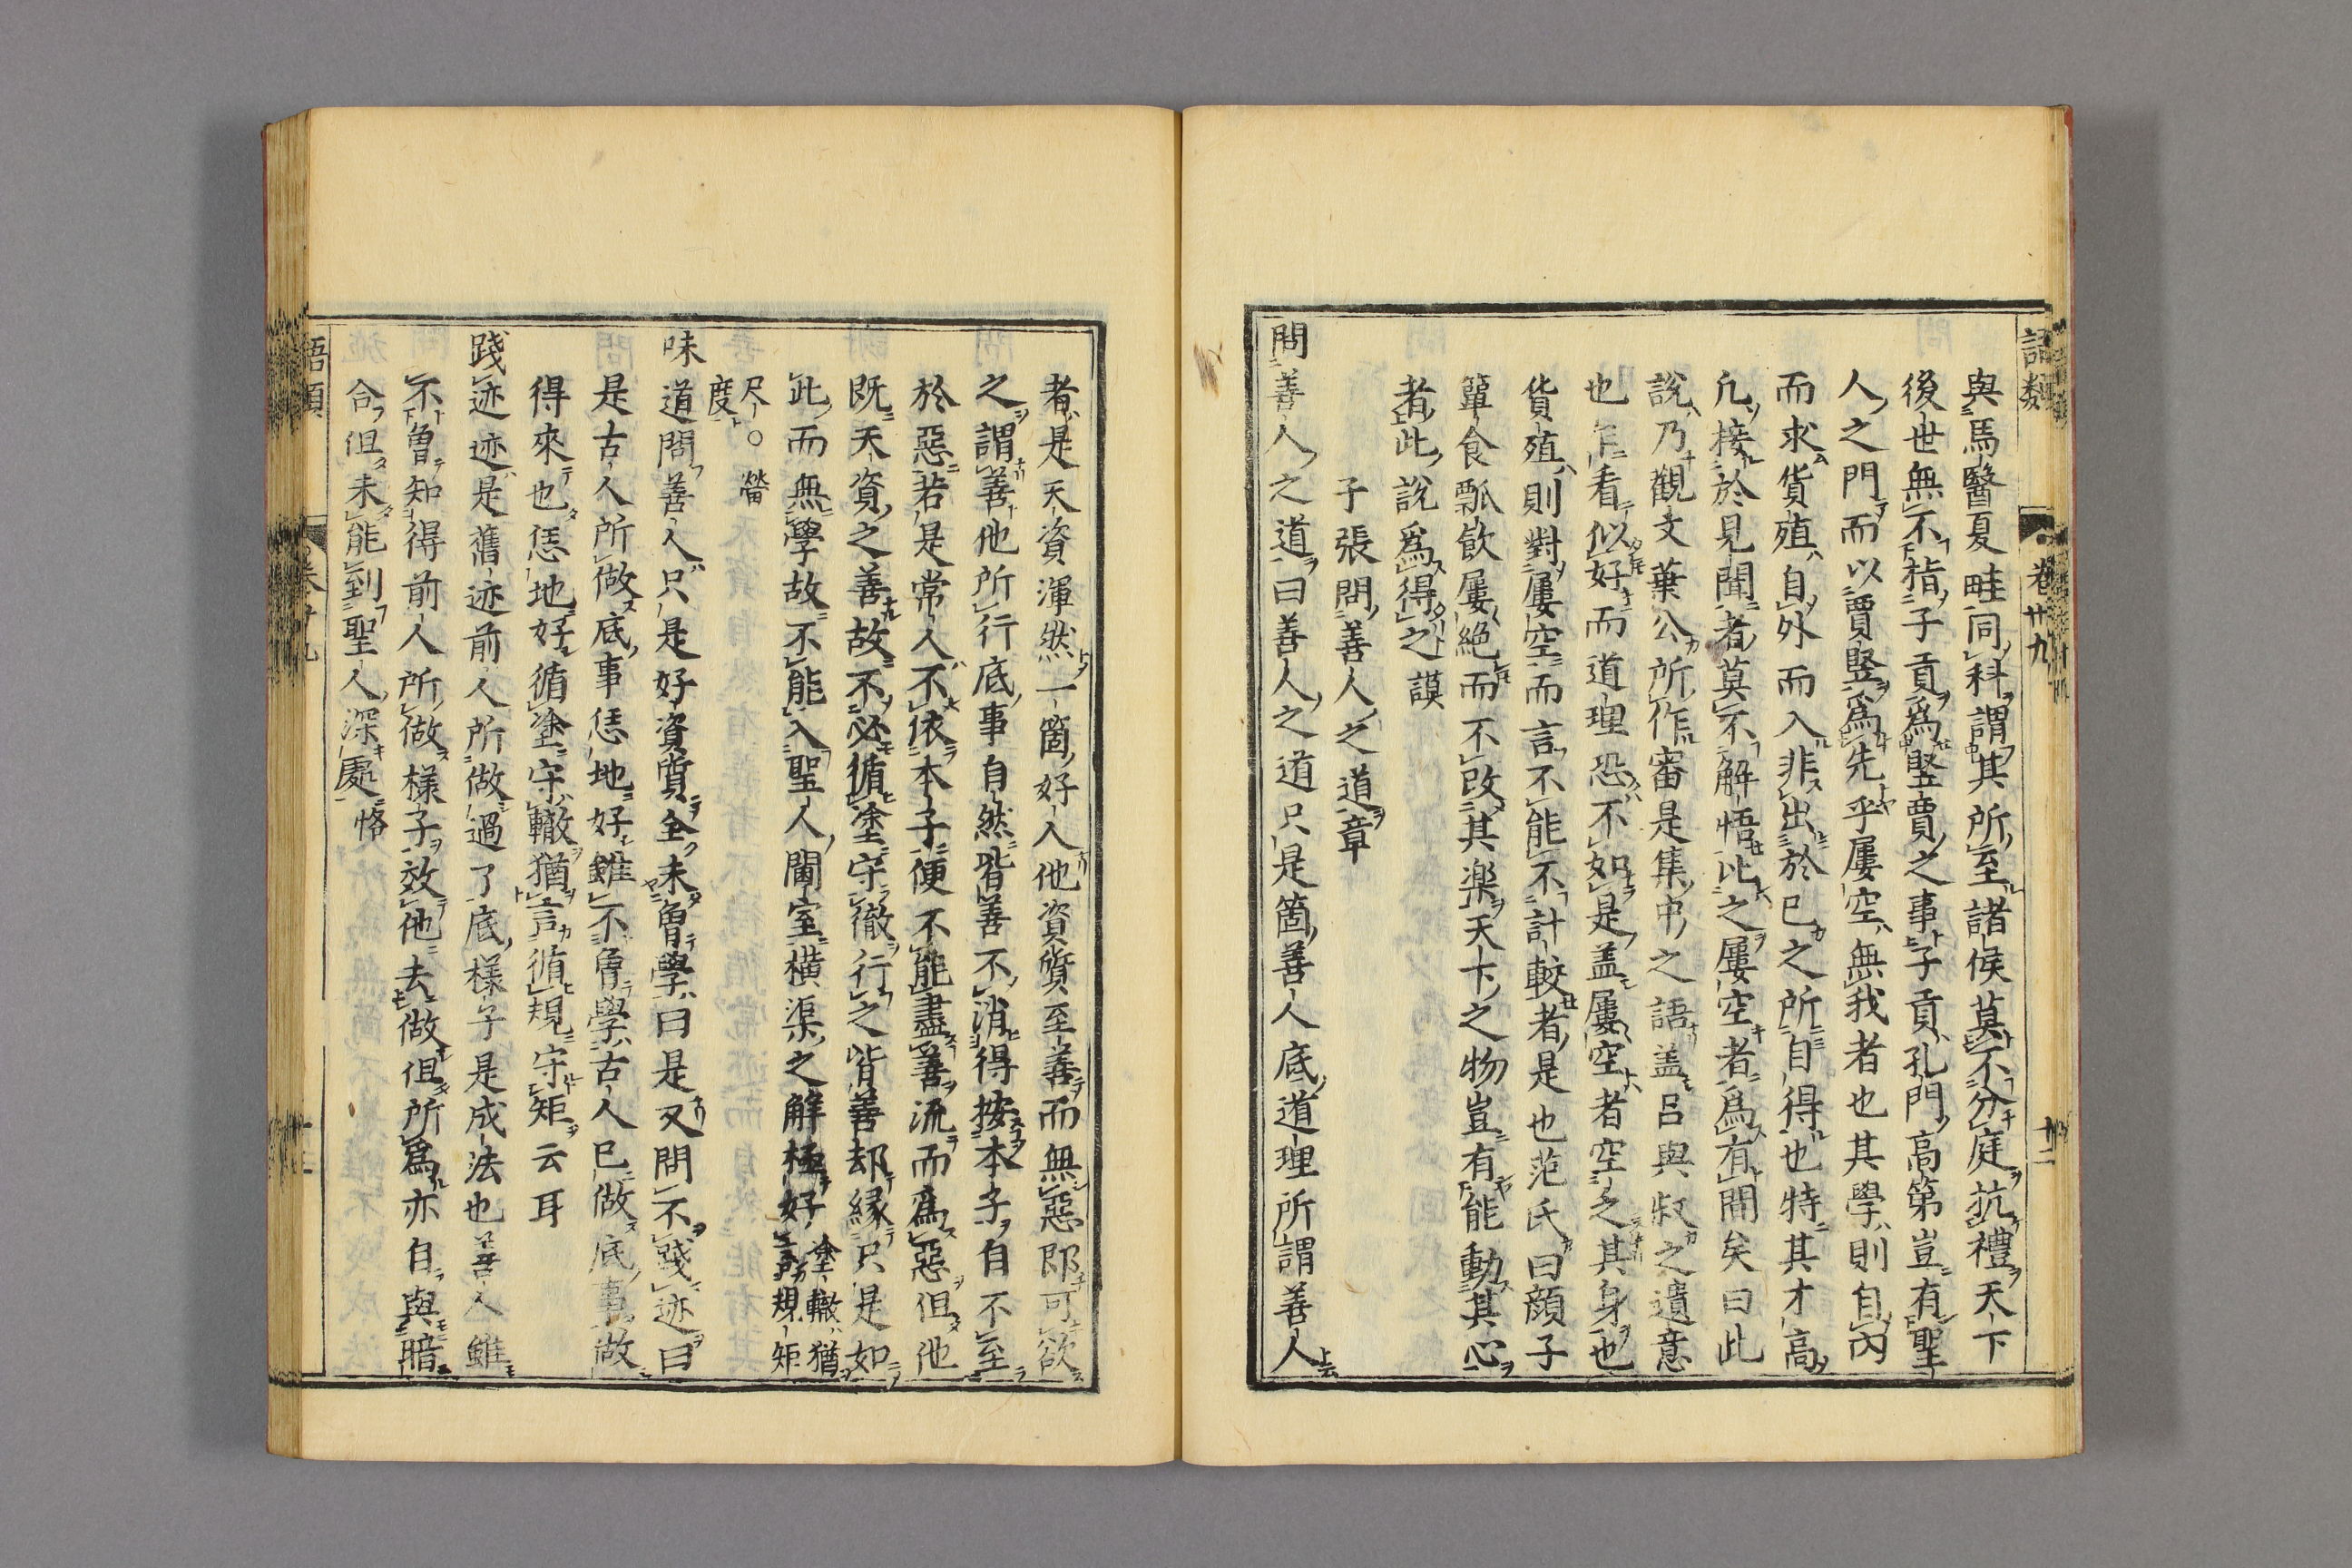 語類
卷廿九
十二
與馬醫夏畦同科謂其所至諸侯莫不分庭抗禮天下
後世無不指子貢爲竪賈之事子貢孔門高第豈有聖
人之門而以賈竪爲先乎屢空無我者也其學則自內
而求貨殖自外而入非出於已之所自得也特其才高
凡接於見聞者莫不解悟比之屢空者爲有間矣曰此
說乃觀文葉公所作審是集中之語盖呂與叔之遺意
也乍看似好而道理恐不如是盖屢空者空乏其身也
貨殖則對屢空而言不能不計較者是也范氏曰顔子
簞食瓢飲屢絕而不改其楽天下之物豈有能動其心
者此說爲得之 謨
子張問善人之道章
問善人之道曰善人之道只是箇善人底道理所謂善人
者是天資渾然一箇好人他資質至善而無惡即可欲
之謂善他所行底事自然皆善不消得按本子自不至
於惡若是常人不依本子便不能盡善流而爲惡但他
既天資之善故不必循塗守徹行之皆善却緣只是如
此而無學故不能入聖人閫室橫渠之解極好 塗轍猶言規矩
尺度 ○ 㽦
味道問善人只是好資質全未曾學曰是又問不踐迹曰
是古人所做底事恁地好雖不曾學古人已做底事做
得來也恁地好循塗守轍猶言循規守矩云耳
踐迹迹是舊迹前人所做過了底樣子是成法也善人雖
不曾知得前人所做樣子效他去做但所爲亦自與暗
合但未能到聖人深處 恪
語類
卷廿九